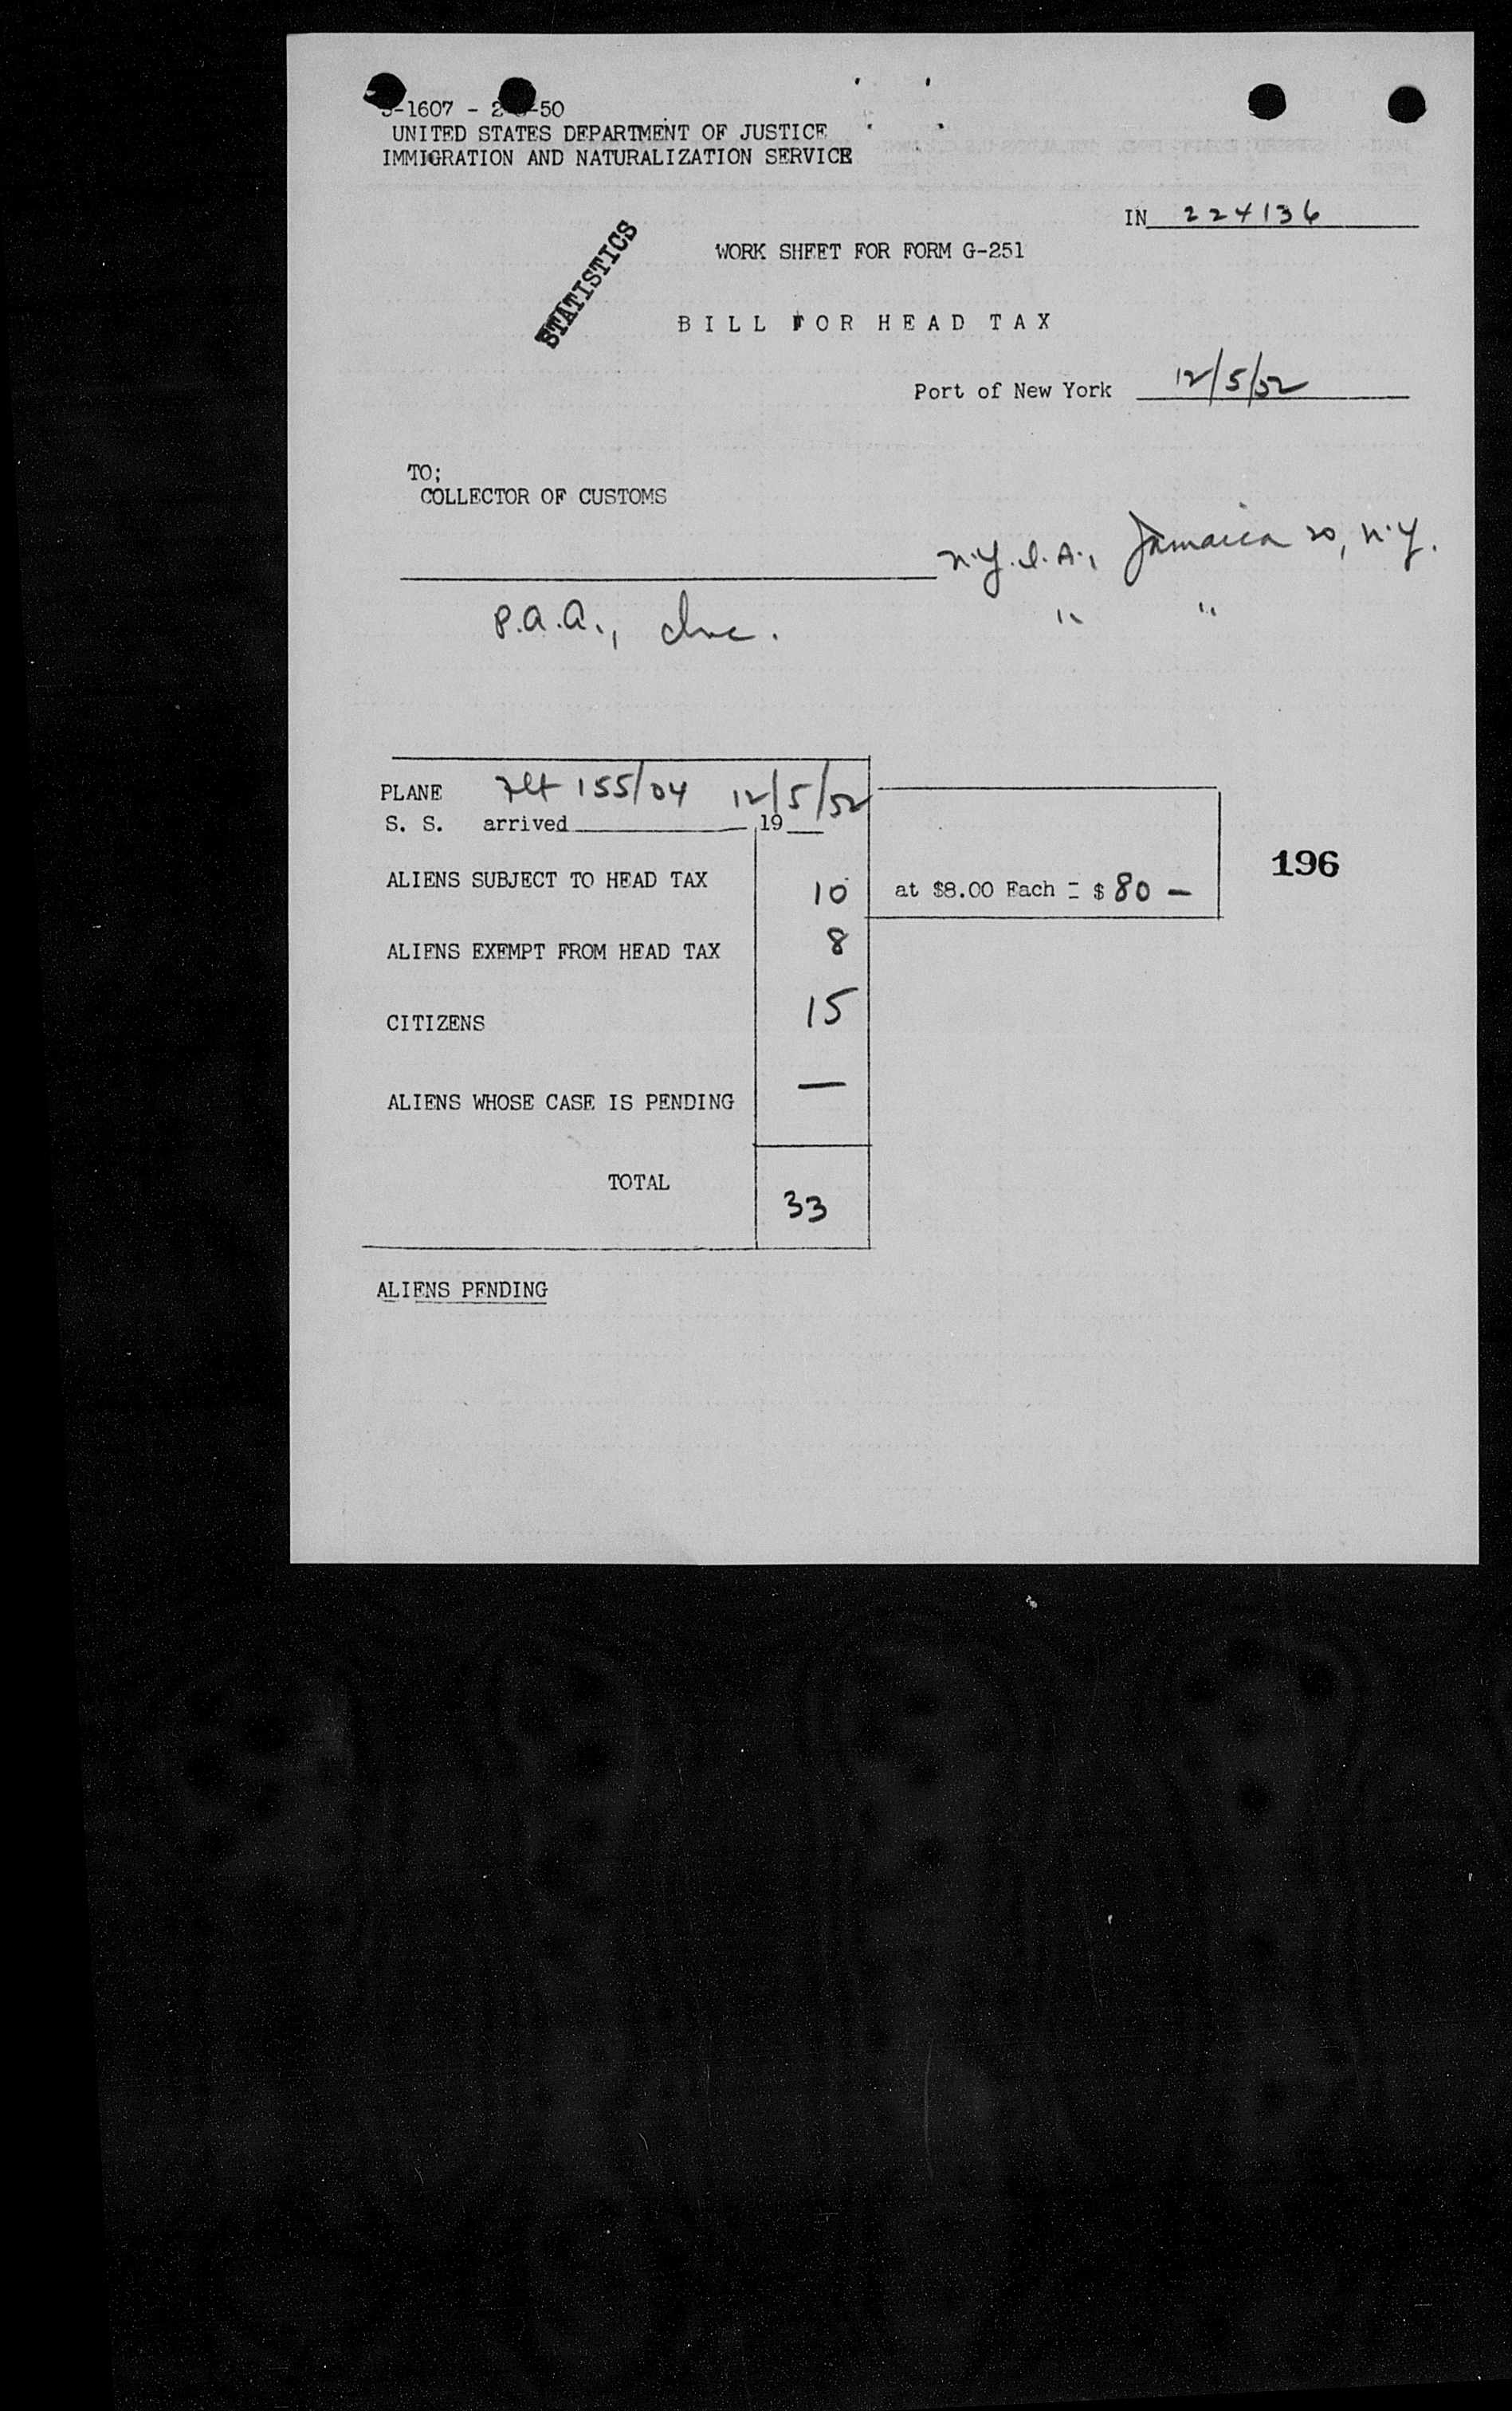 -1607 - 2 -50
UNITED STATES DEPARTMENT OF JUSTICE
IMMIGRATION AND NATURALIZATION SERVICE
IN 224136
STATISTICS
WORK SHEET FOR FORM G-251
BILL FOR HEAD TAX
Port of New York 12/5/52
TO;
COLLECTOR OF CUSTOMS
N.Y.I.A., Jamaica 20, N.Y.
P.A.A., Inc. " "
PLANE Flt 155/04 12/5/52
S. S. arrived 19
196
ALIENS SUBJECT TO HEAD TAX 10 at $8.00 Each = $ 80 —
ALIENS EXEMPT FROM HEAD TAX 8
CITIZENS 15
ALIENS WHOSE CASE IS PENDING —
TOTAL 33
ALIENS PENDING